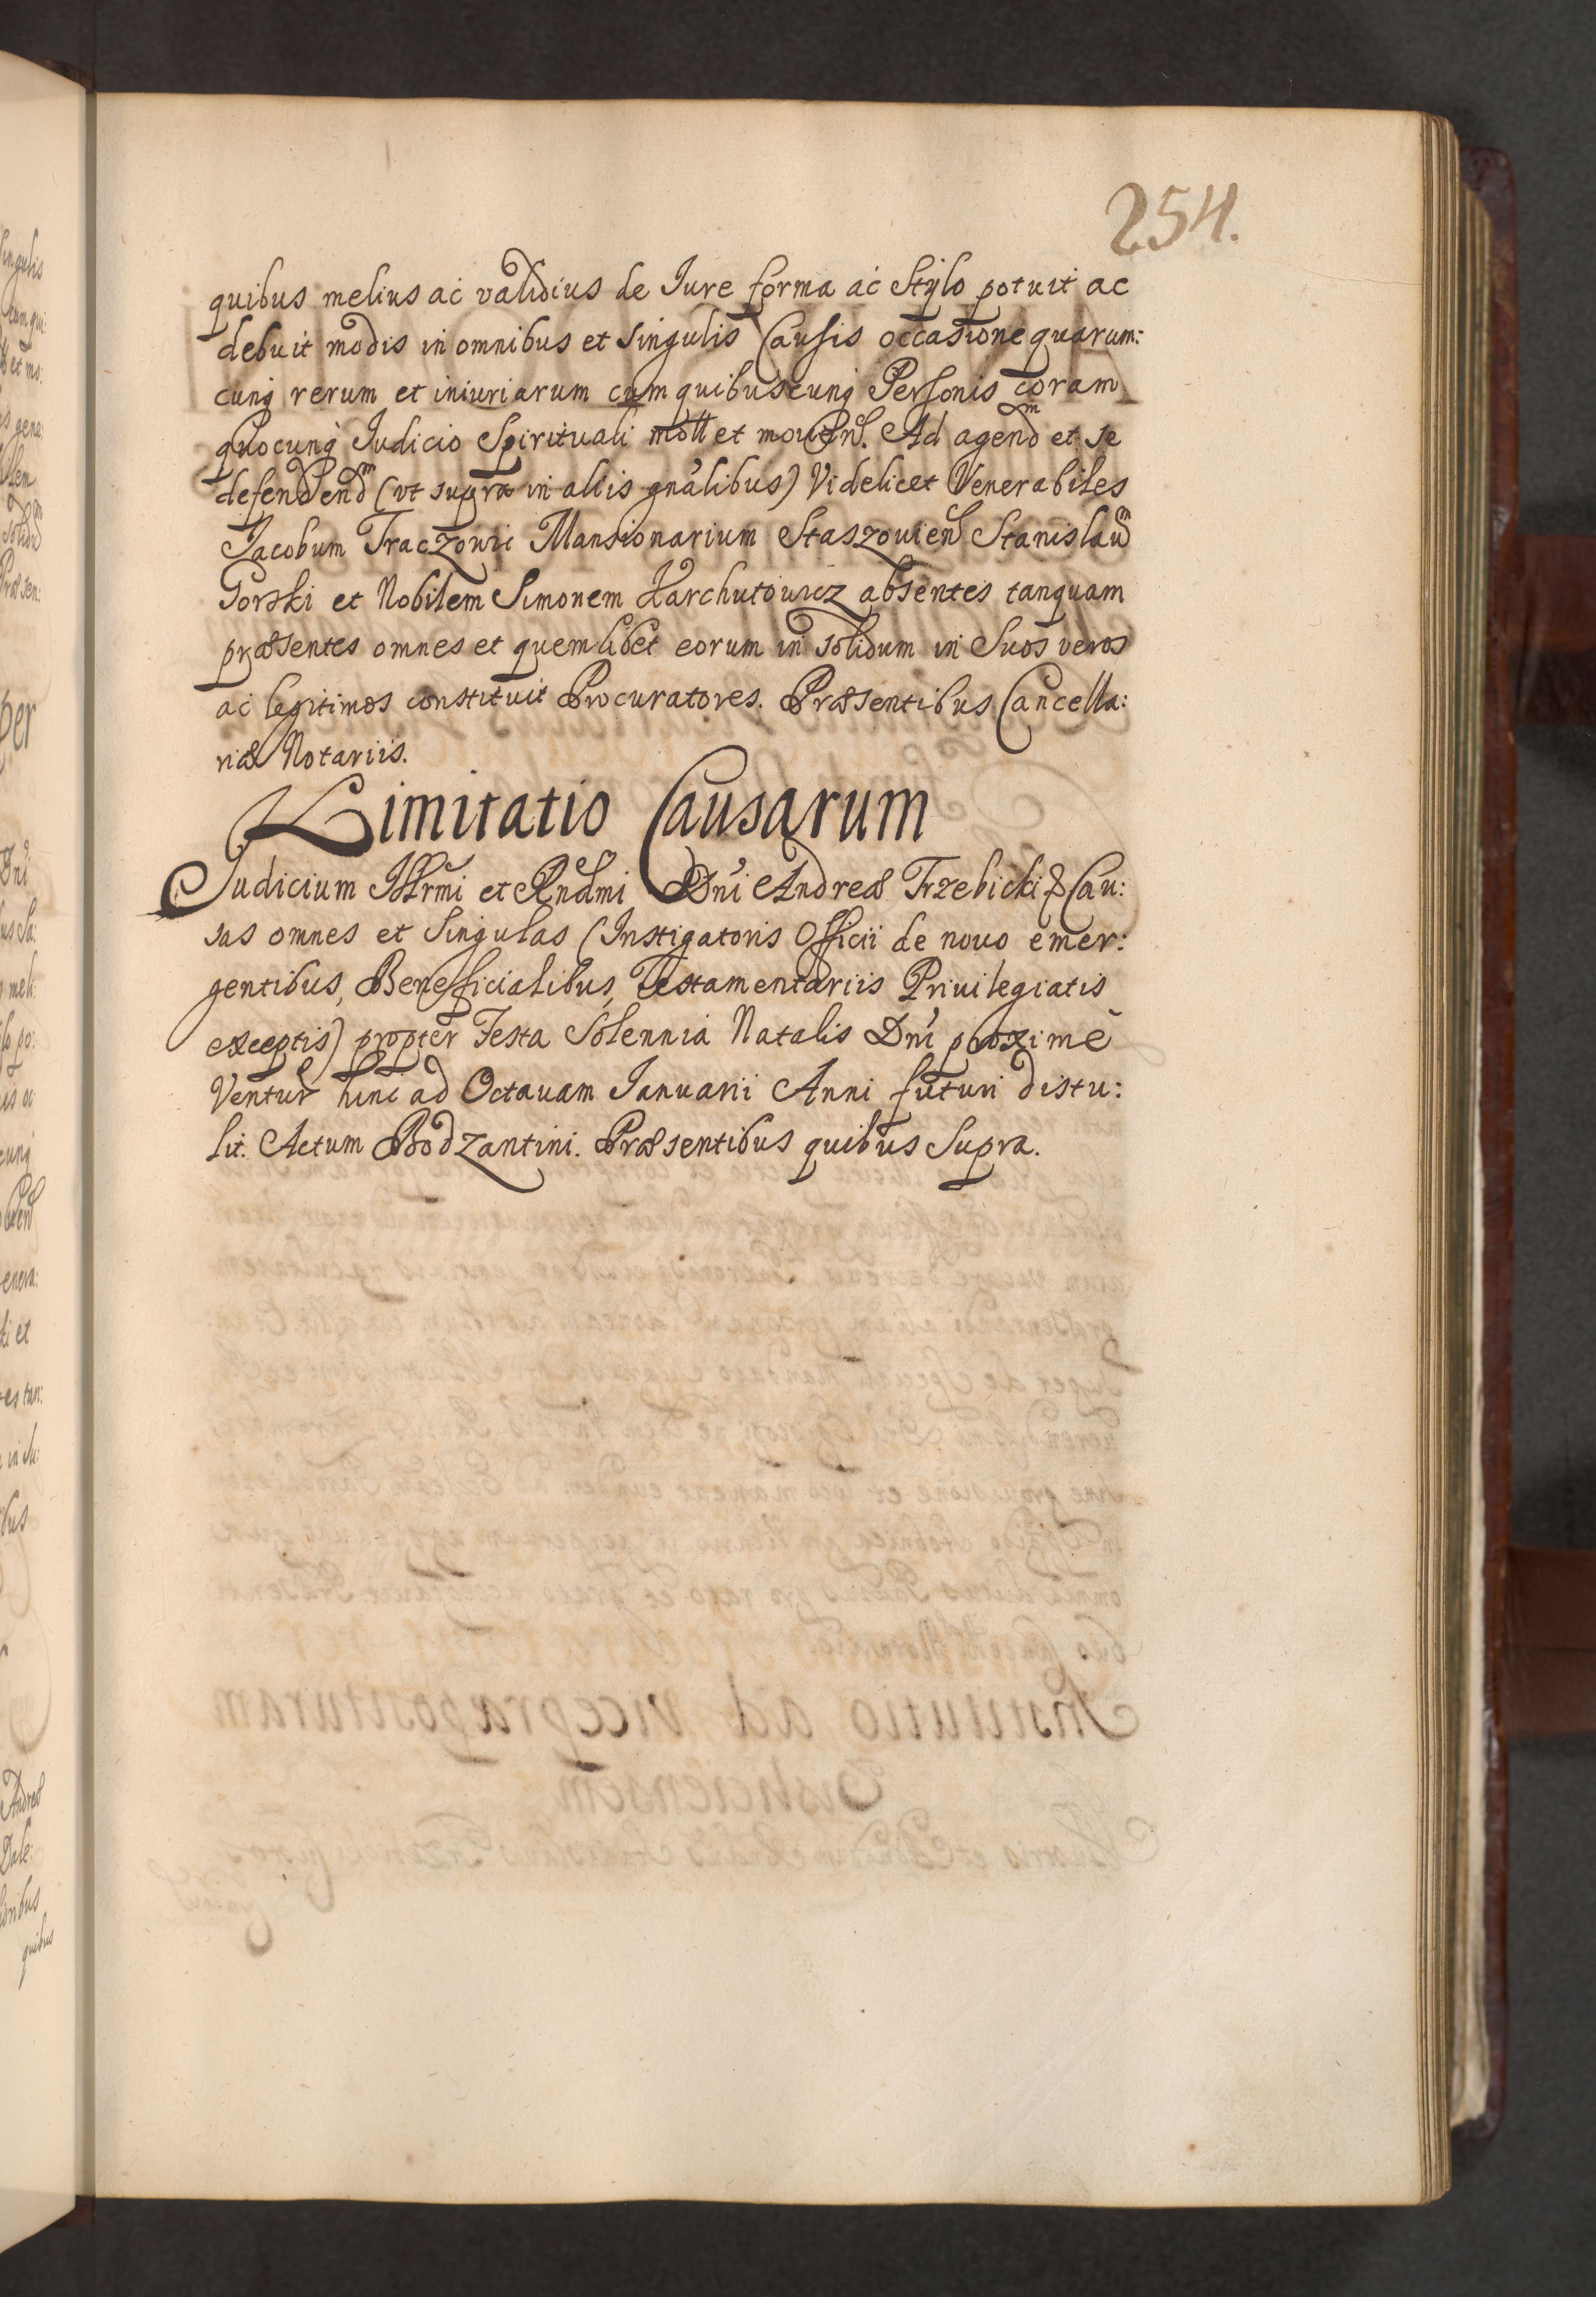 254.
quibus melius ac validius de Iure forma ac Stylo potuit ac
debuit modis in omnibus et singulis Causis occasione quarum:
cunq rerum et iniuriarum cum quibuscunq Personis coram
quocunq Judicio Spirituali mott et mouen. Ad agendm et se
defendendm (vt supra in aliis gnalibus) Videlicet Venerabiles
Jacobum Traczowic Mansionarium Staszouien Stanislaum
Gorski et Nobilem Simonem Karchutowicz absentes tanquam
præsentes omnes et quemlibet eorum in solidum in Suos veros
ac legitimos constituit Procuratores. Præsentibus Cancella:
riæ Notariis.
Limitatio Causarum
Judicium Illrmi et Rndmi Dni Andreæ Trzebicki & Cau:
sas omnes et singulas (Instigatoris Officii de nouo emer:
gentibus, Benefficialibus, Testamentariis Priuilegiatis
exceptis) propter Festa Solennia Natalis Dni proxime
Ventur hinc ad Octauam Ianuarii Anni futuri distu:
lit. Actum Bodzantini. Præsentibus quibus Supra.